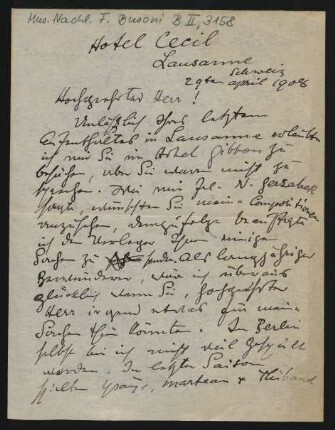 Mus. Nachl. F. Busoni B II, 3158
Hotel Cecil
Lausanne
Schweiz
29ten April 1908
Hochgeehrter Herr!
Anläßlich Ihres letzten
Aufenthaltes in Lausanne erlaubte
ich mir Sie im Hotel Gibbon zu
besuchen, aber Sie waren nicht zu
sprechen. Wie mir Frl.
sagte, wünschten Sie meine Compositionen
anzusehen, demzufolge beauftragte
ich den Verleger Ihnen einige
Sachen zu senden. Als langjähriger
Bewunderer, wär ich überaus
glücklich wenn Sie, hochgeehrter
Herr irgend etwas für meine
Sachen thun könnten. In Berlin
selbst bin ich nicht viel gespielt
worden. In letzter Saison
spielten Ysaÿe, Marteau & Thibaud